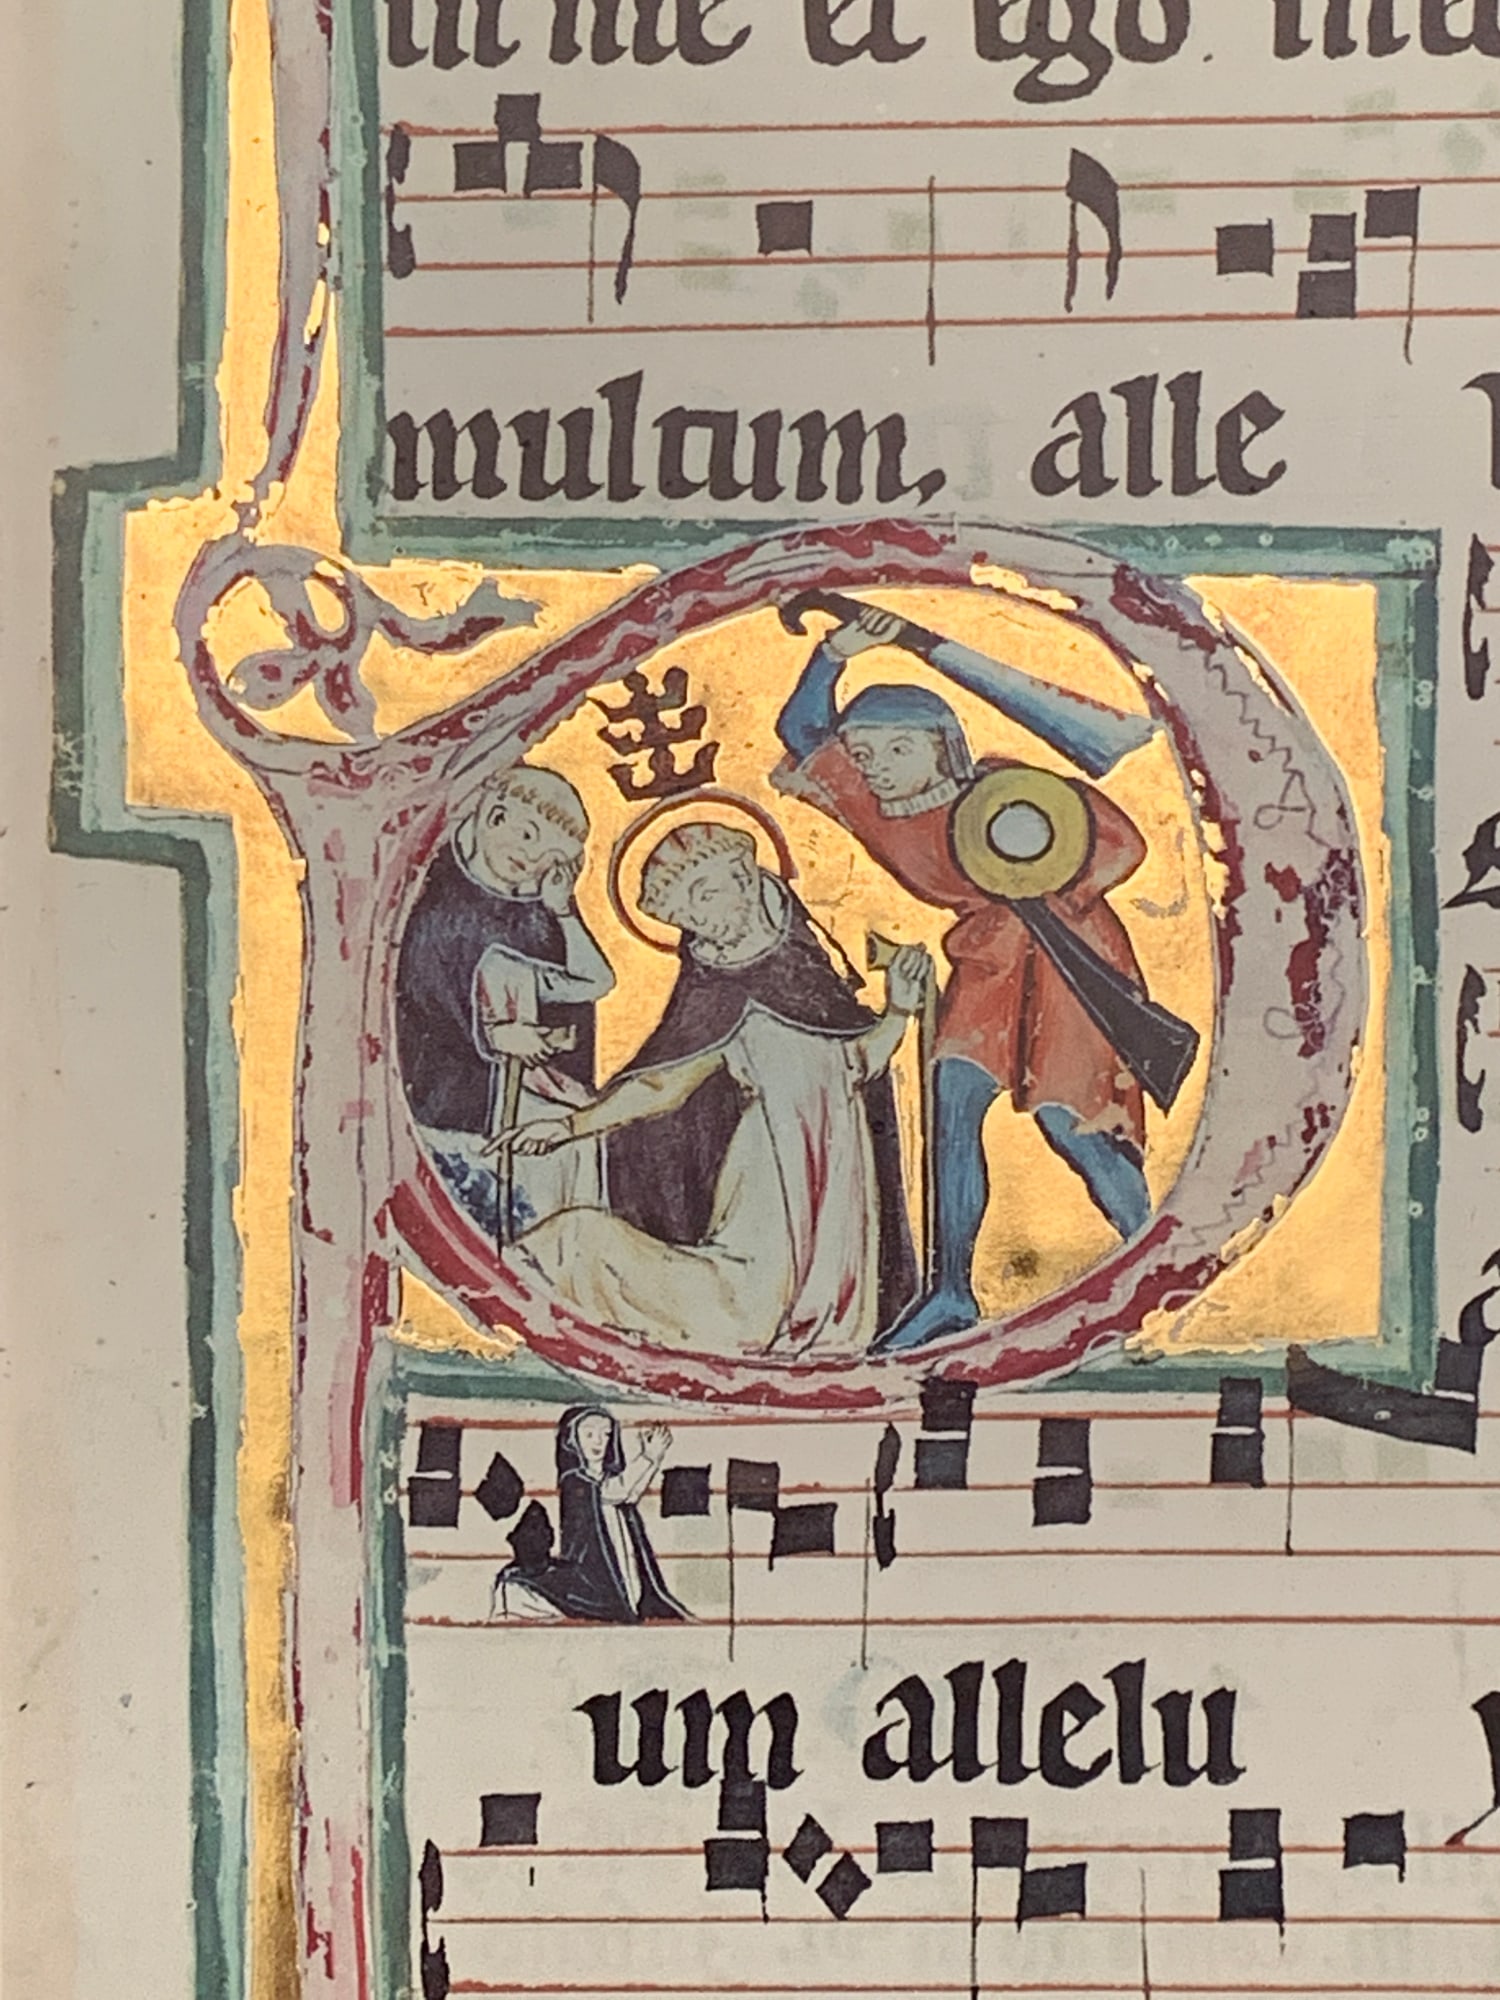 in me et ego in
multum, alle
P
um allelu